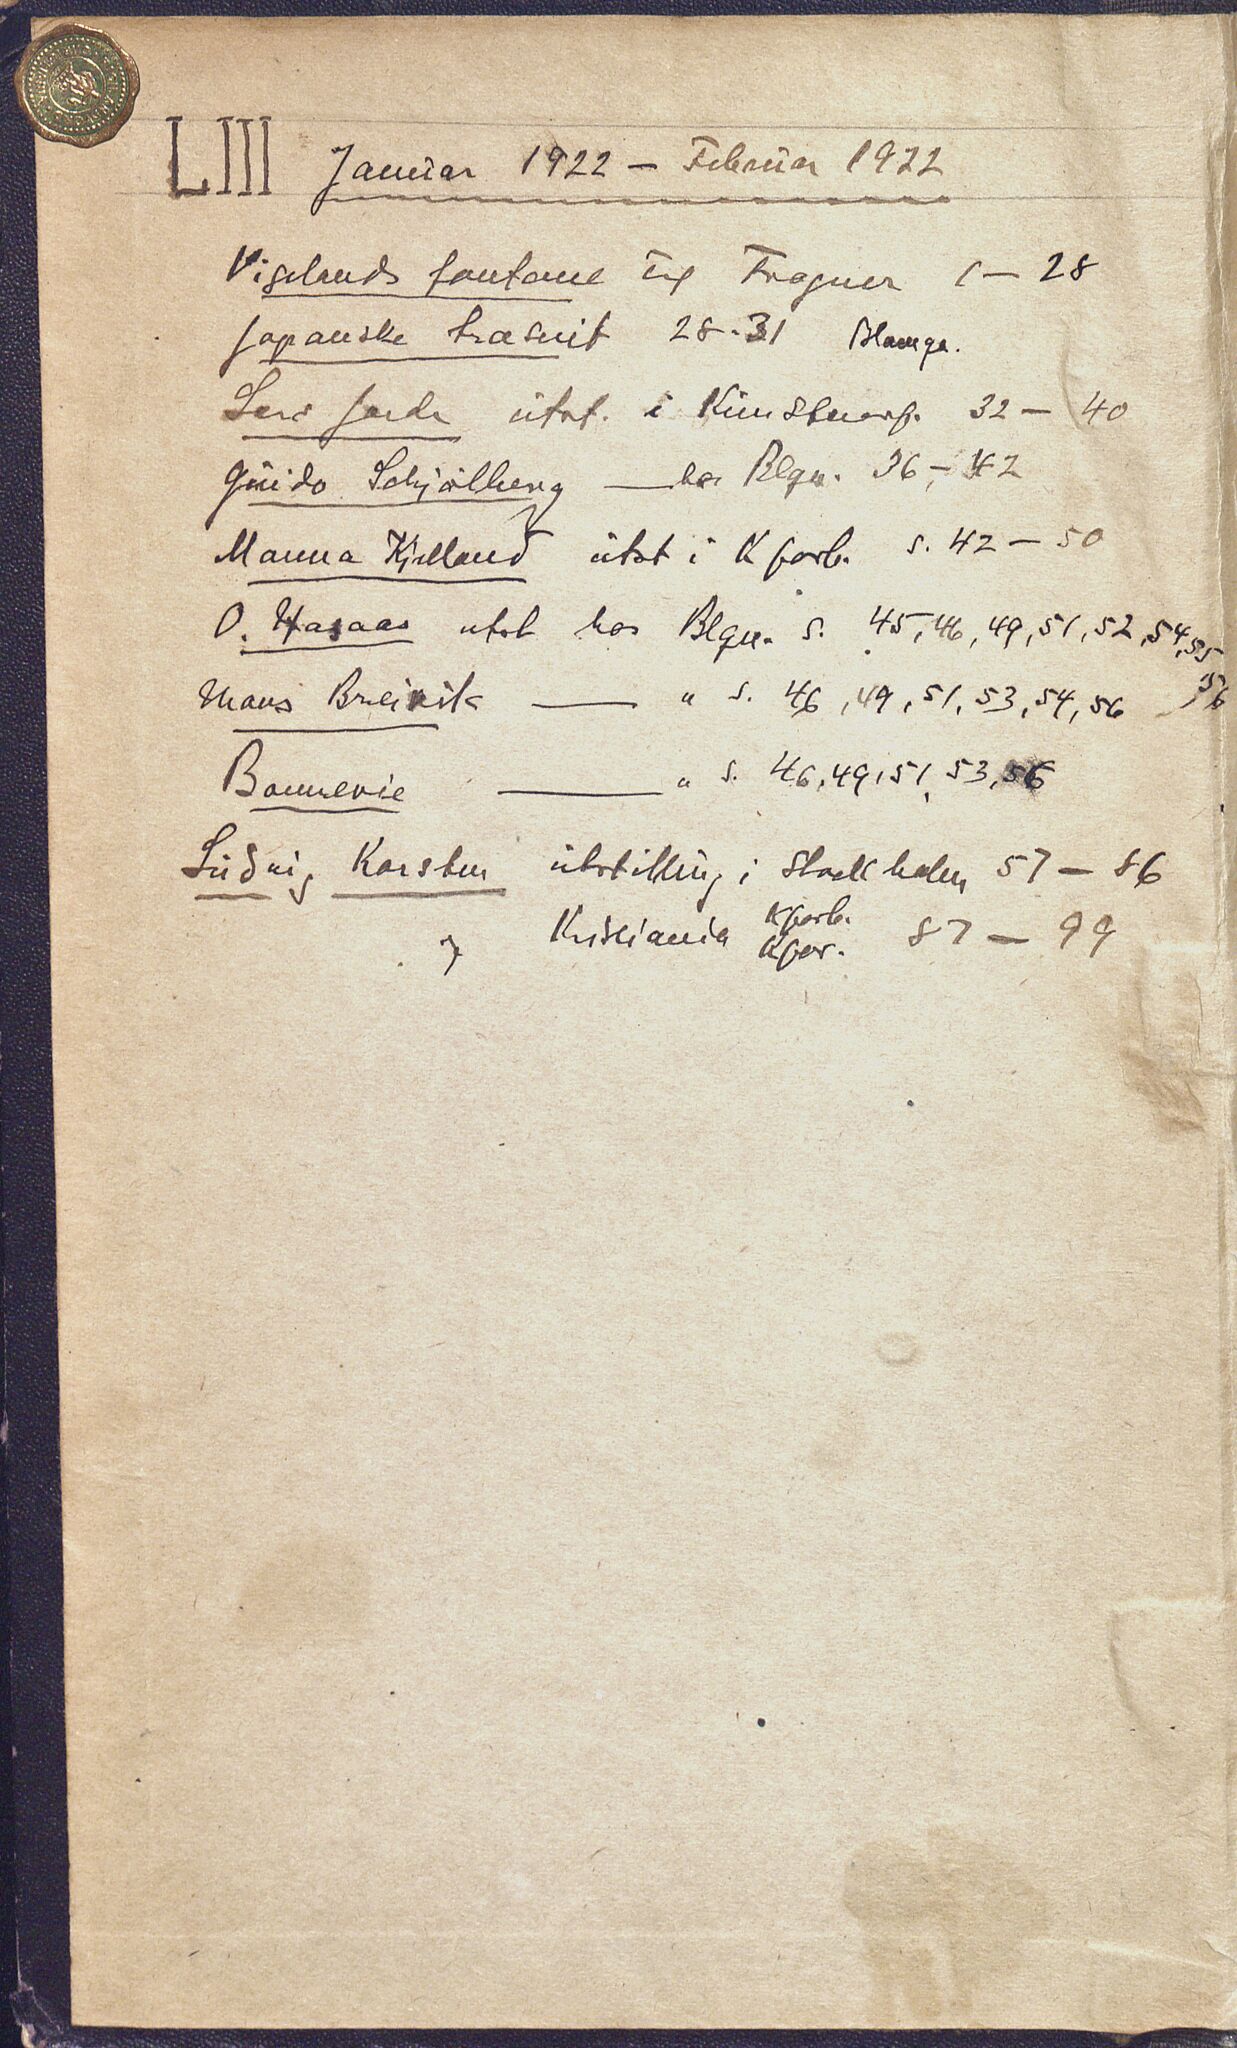 LIII Januar 1922 – Februar 1922
Vigelands fontæne Frogner 1 – 28
japanske træsnit 28-31 Blomqv.
Lars Jorde utst. i Kunstnerf. 32 – 40
Guido Schjølberg — hos Blqv. 36 – 42
Manna Kjelland utst i Kforb. s. 42 – 50
O. utst hos Blqv. s. 45, 46, 49, 51, 52, 54, 55
56
Hans Breivik — " s. 46, 49, 51, 53, 54, 56
Bonnevie — " s. 46, 49, 51, 53, 56
Ludvig Karsten utstilling i Stockholm 57 – 86
Kristiania Kforb. 87 – 99
Kfor.